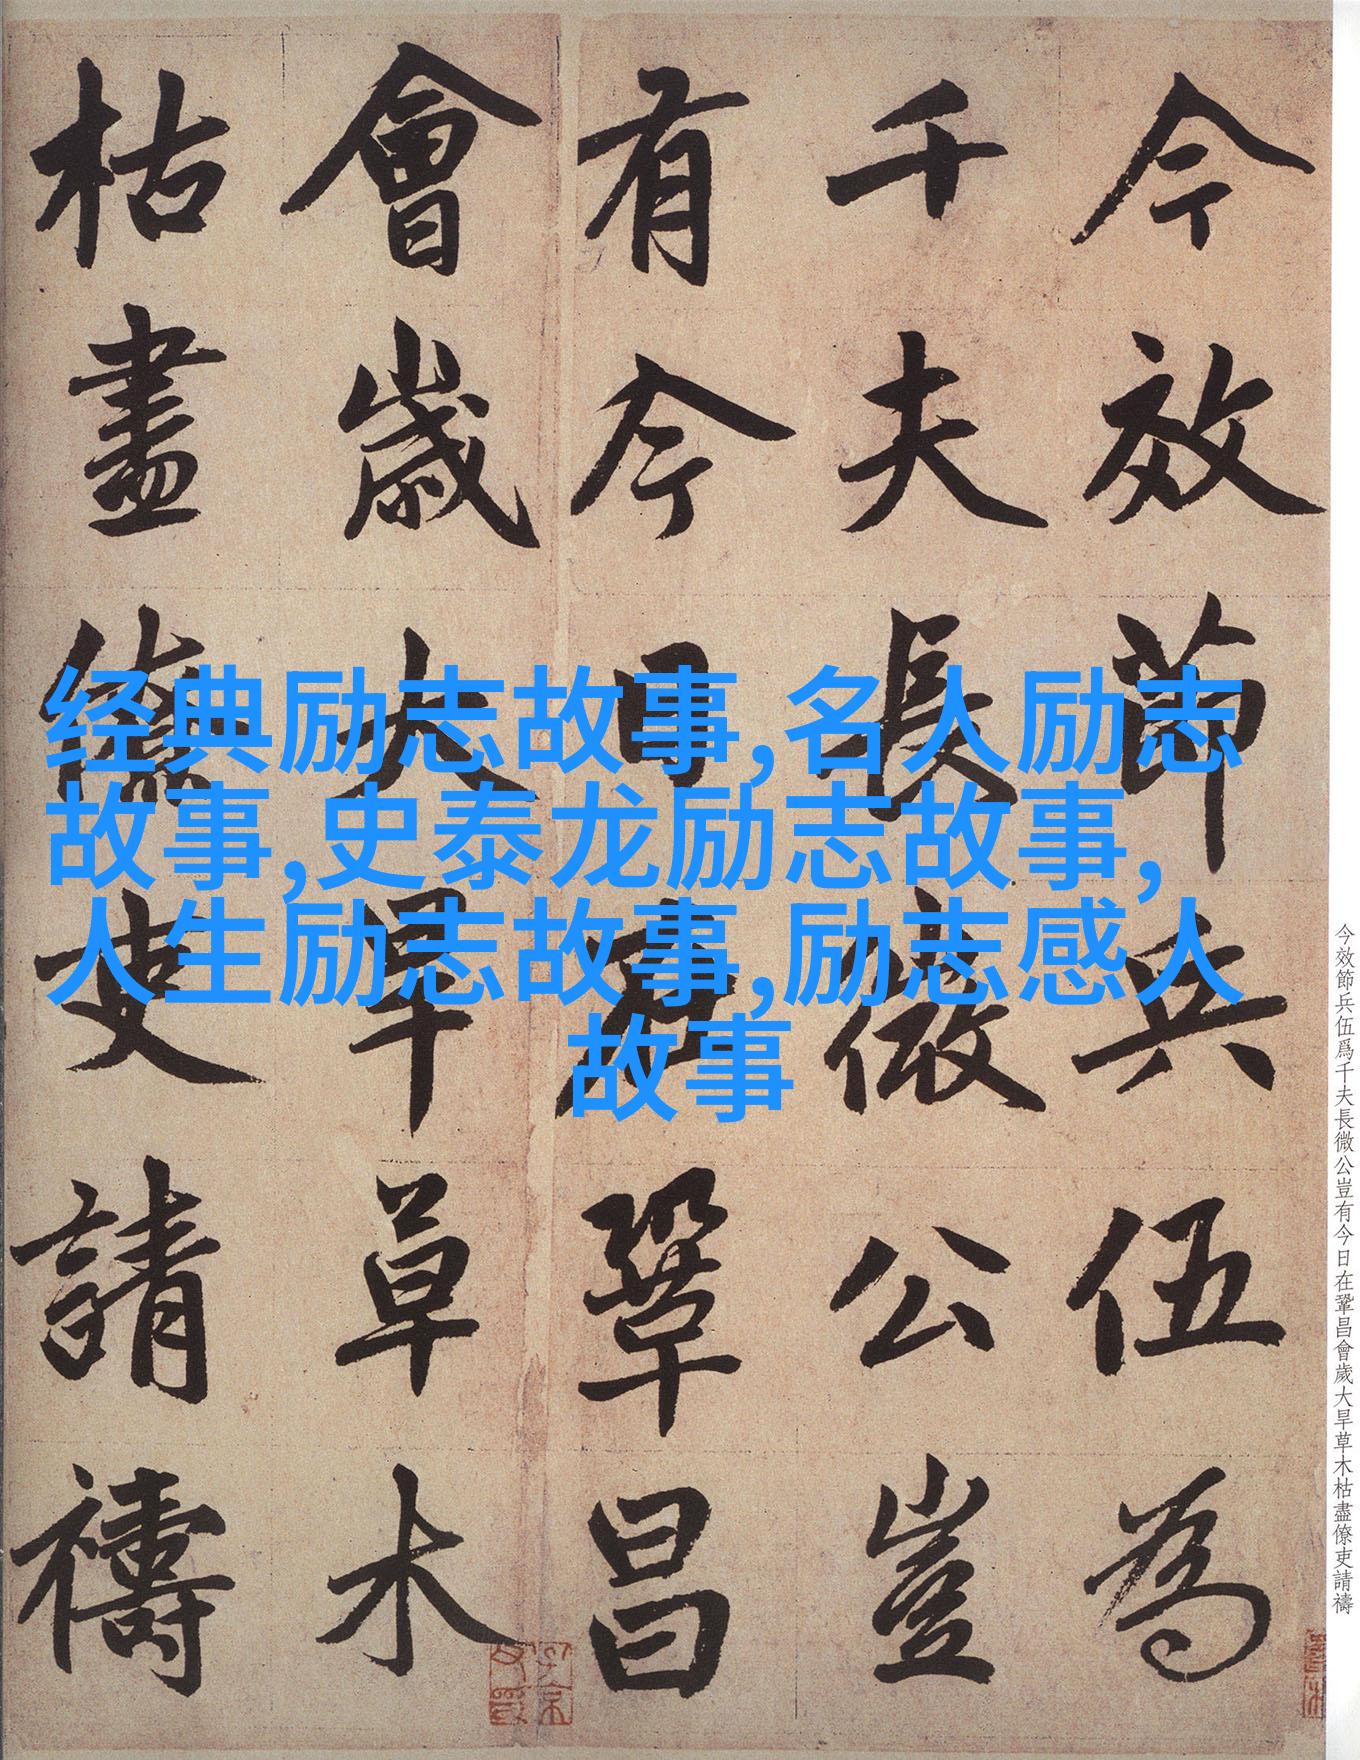 今效節兵伍為
千夫長微公豈
有今日在鞏昌
會歲大旱草木
枯盡僚吏請禱
经典励志故事,名人励志
故事,史泰龙励志故事,
人生励志故事,励志感人
故事
今效節兵伍爲千夫長微公豈有今日在鞏昌會歲大旱草木枯盡僚吏請禱